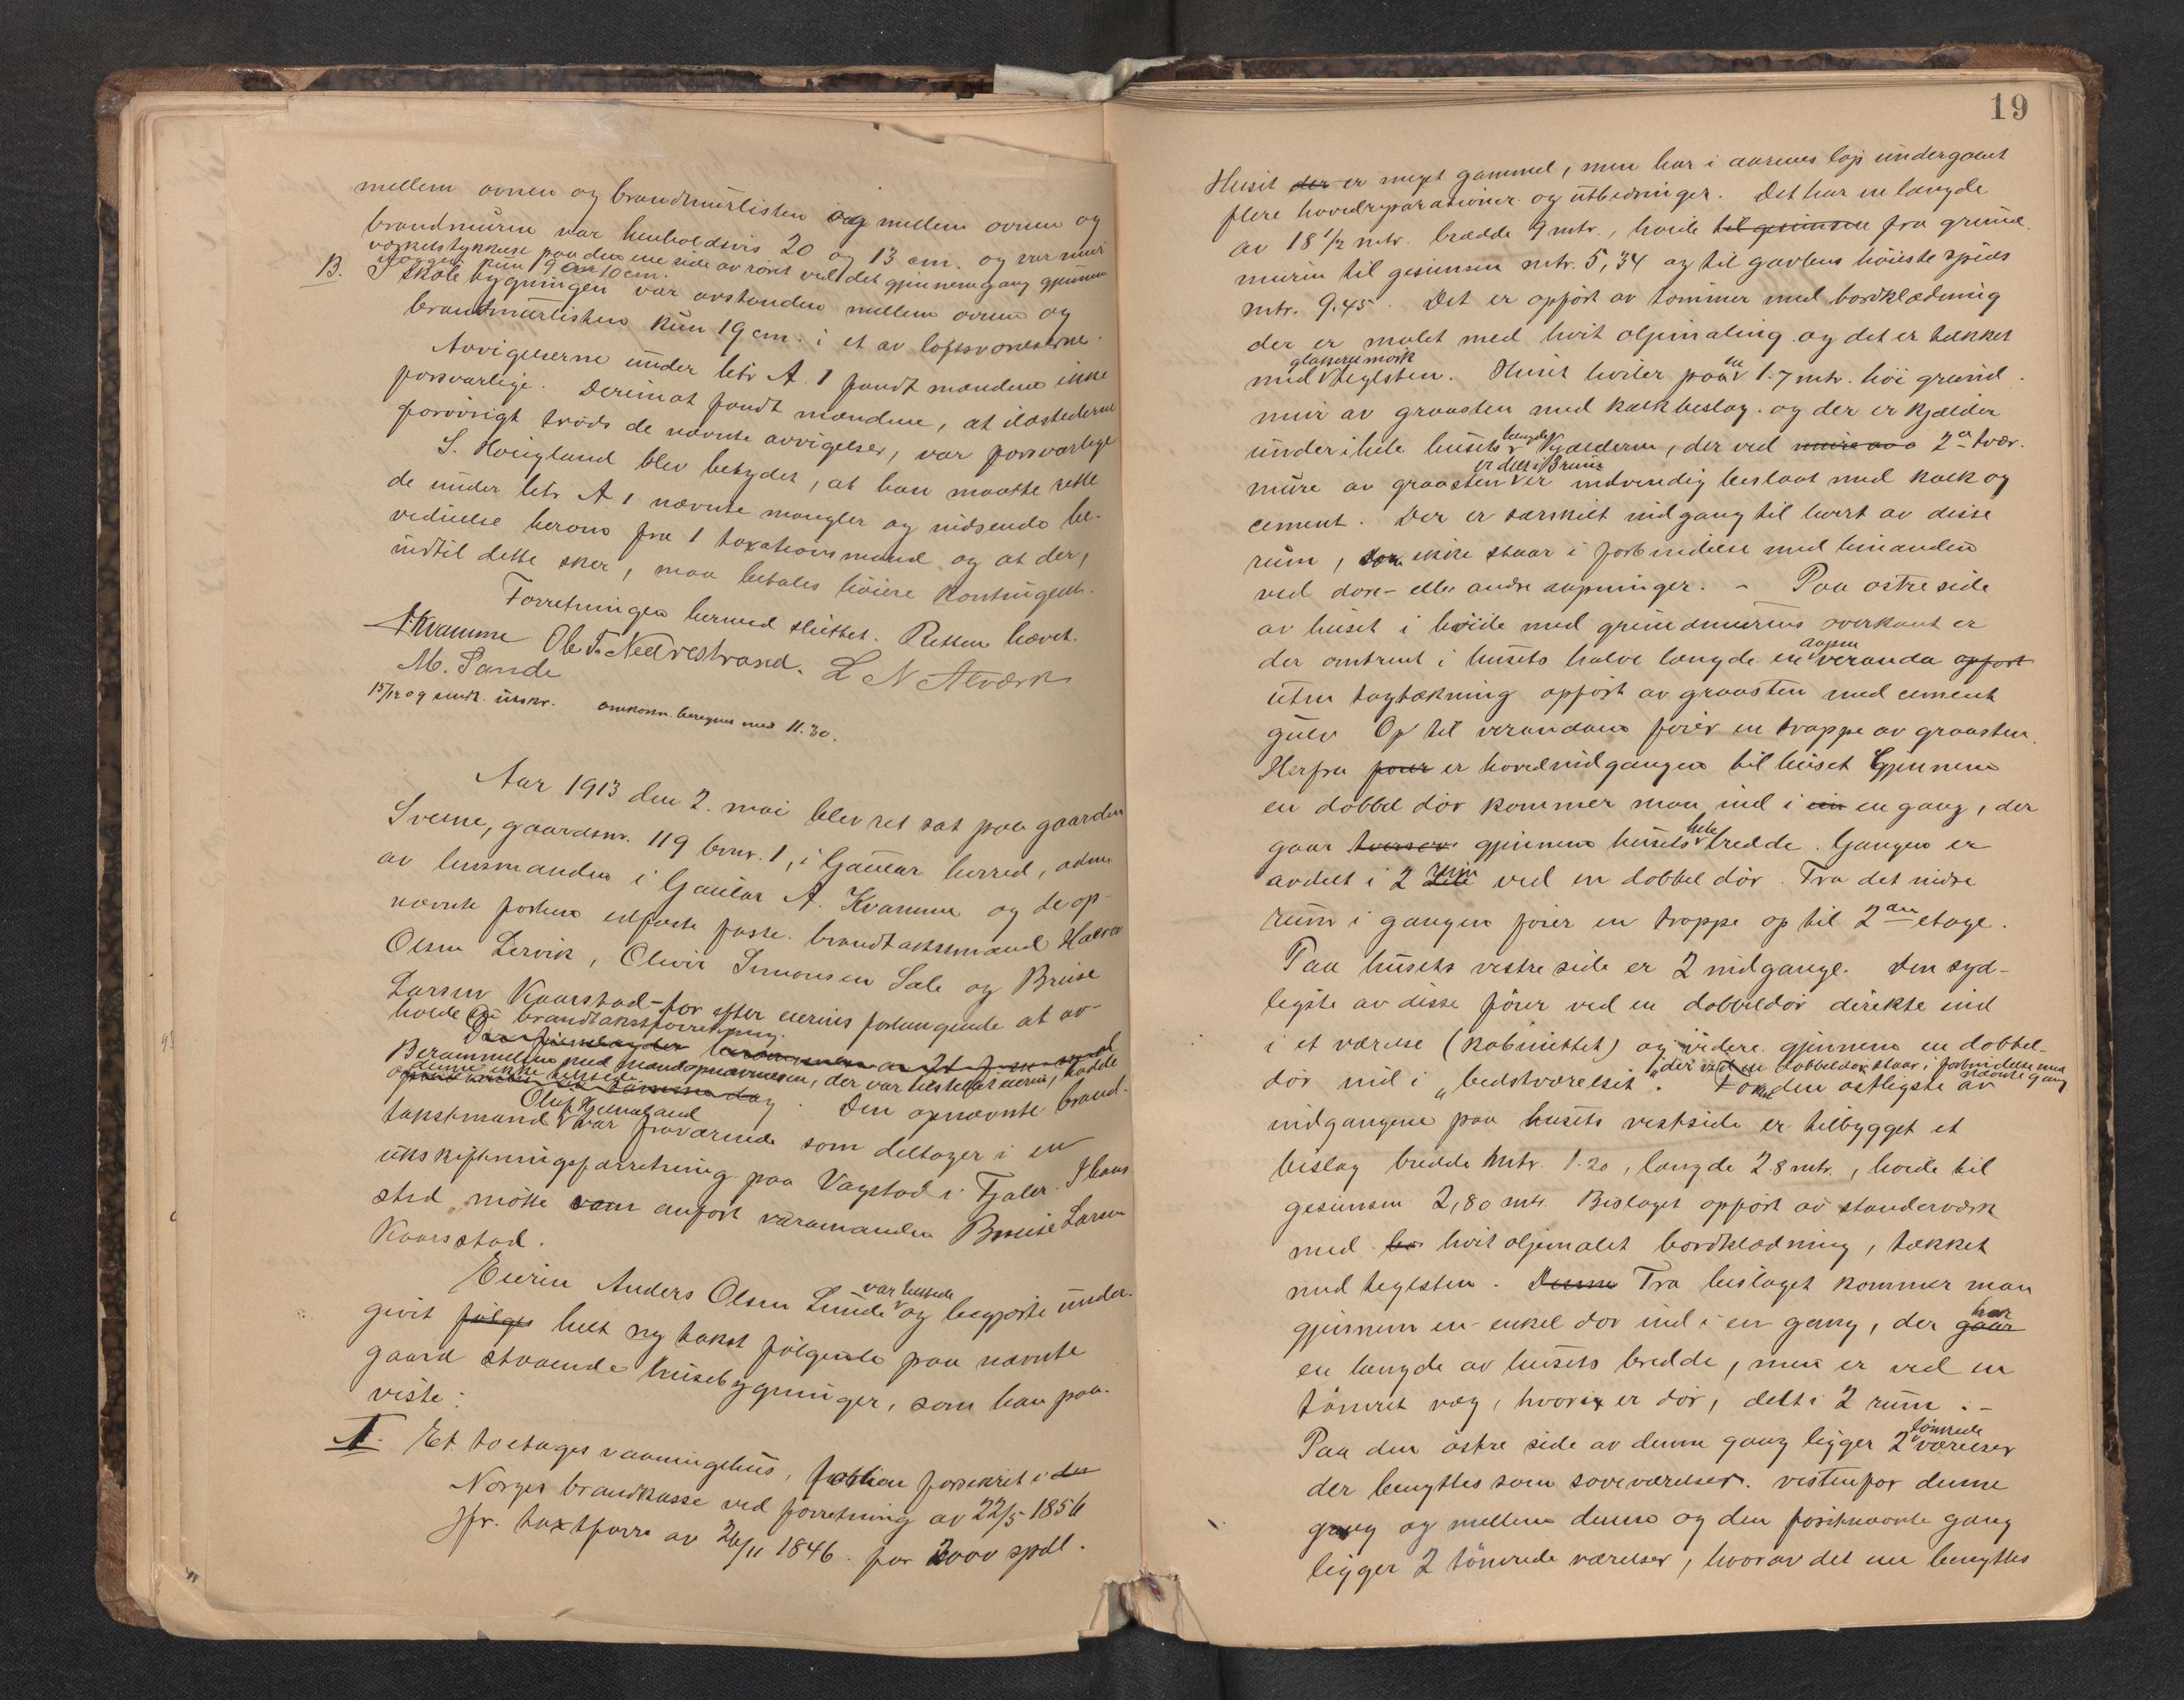 mellem ovnen og brandmurlisten og mellem ovnen og
brandmuren var henholdsvis 20 og 13 cm. og var mur
verkets tykkelse paa den ene side av röret ved det gjennemgang gjennem
væggen kun 9 a 10 cm.
B. I skolebygningen var avstanden mellem ovnen og
brandmurlisten kun 19 cm. i et av loftsværelserne.
Avvigelserne under litr A. 1 fandt mændene ikke
forsvarlige. Derimot fandt mændene, at ildstederne
forövrigt trods de nævnte avvigelser, var forsvarlige
S. Höugland blev betydet, at han maatte rette
de under litr A 1 nævnte mangler og indsende be-
vidnelse herom fra 1 taxationsmand og at der,
indtil dette sker, maa betales höiere kontingent.
Forretningen hermed sluttet. Retten hævet.
A Kvamme Ole T. Nedrestrand.
M. Sande L N Atværk
15/12 09 sendt utskr. omkostn. beregnes med 11.30.
Aar 1913 den 2. mai blev ret sat paa gaarden
Sveene, gaardsnr. 119 brnr. 1, i Gaular herred, adm.
av lensmanden i Gaular A. Kvamme og de op-
nævnte forhen edfæste faste brandtakstmænd Halvor
Olsen Lervik, Oliver Simonsen Sæle og Bruse
Larsen Kaarstad for efter eierens forlangende at av-
holde en brandtakstforretning.
Berammelsen med mandsopnævnelsen, der var tilstillet eieren, hadde
denne ikke tilstede. Den opnævnte brand-
takstmand Oluf Hjelmeland var fraværende som deltager i en
utskiftningsforretning paa Vagstad i Fjaler. I hans
sted mötte som anfört varamanden Bruse Larsen
Kaarstad.
Eieren Anders Olsen Lunde var tilstede og begjærte under-
givet følges helt ny takst følgende paa nævnte
gaard staaende husebygninger, som han paa-
viste:
I. Et toetages vaaningshus, forhen forsikret i den
Norges brandkasse ved forretning av 22/5 1856
jfr. taxtforr. av 26/11 1846. for 2000 spdl.
19
Huset der er meget gammel, men har i aarenes löp undergaaet
flere hovedreparationer og utbedringer. Det har en længde
av 18 1/2 mtr. bredde 9 mtr., höide til gesimsen fra grund
muren til gesimsen mtr. 5,34 og til gavlens höieste spids
mtr. 9.45. Det er opfört av tømmer med bordklædning
der er malet med hvit oljemaling og det er tækket
med glasseret mörk teglsten. Huset hviler paa en 1.7 mtr. höi grund
mur av graasten med kalkbeslag. og der er kjælder
under i hele husets længde. Kjælderen, der ved mure av 2de tvær-
mure av graasten er delt i 3 rum er indvendig beslaat med kalk og
cement. Der er særskilt indgang til hvert av disse
rum, som ikke staar i forbindelse med hinanden
ved döre- eller andre aapninger. - Paa östre side
av huset i höide med grundmurens overkant er
der omtrent i husets halve længde en aapen veranda opfört
uten tagtækning opfört av graasten med cement
gulv Op til verandaen förer en trappe av graasten.
Herfra förer er hovedindgangen til huset Gjennem
en dobbel dör kommer man ind i ein en gang, der
gaar tversov. gjennem husets hele bredde. Gangen er
avdelt i 2 dele rum ved en dobbel dör. Fra det indre
rum i gangen förer en trappe op til 2den etage.
Paa husets vestre side er 2 indgange. Den syd-
ligste av disse förer ved en dobbeldör direkte ind
i et værelse (kabinettet) og videre gjennem en dobbel-
dör ind i "bedstværelset", der ved en dobbeldör staar i forbindelse med
nævnte gang. Foran den östligste av
indgangene paa husets vestside er tilbygget et
bislag bredde mtr. 1.20, længde 2.8 mtr., höide til
gesimsen 2,80 mtr. Bislaget opfört av standerværk
med bo hvit oljemalet bordklædning, tækket
med teglsten. Denne Fra bislaget kommer man
gjennem en enkel dör ind i en gang, der gaar har
en længde av husets bredde, men er ved en
tömret væg, hvori er dör, delt i 2 rum. -
Paa den östre side av denne gang ligger 2 tömrede værelser
der benyttes som soveværelser. vestenfor denne
gang og mellem denne og den förstnævnte gang
ligger 2 tömrede værelser, hvorav det ene benyttes